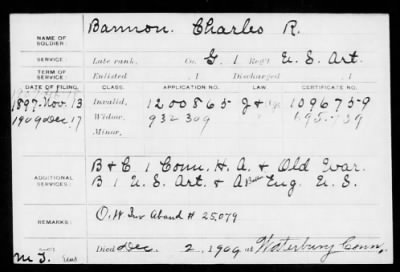 Bannon. Charles R.
NAME OF SOLDIER:
SERVICE: Late rank, Co. G. 1 Reg't U. S. Art.
TERM OF SERVICE: Enlisted , 1 Discharged , 1
DATE OF FILING. CLASS. APPLICATION NO. LAW. CERTIFICATE NO.
1897. Nov. 13 Invalid, 1200865 1096759
1909 Dec. 17 Widow, 932309
Minor,
B & C 1 Conn. H. A. & Old War.
ADDITIONAL SERVICES: B 1 U. S. Art. & A Eng. U. S.
REMARKS: O. W Inv Aband # 25,079
Died Dec. 2, 1909 at Waterbury Conn.